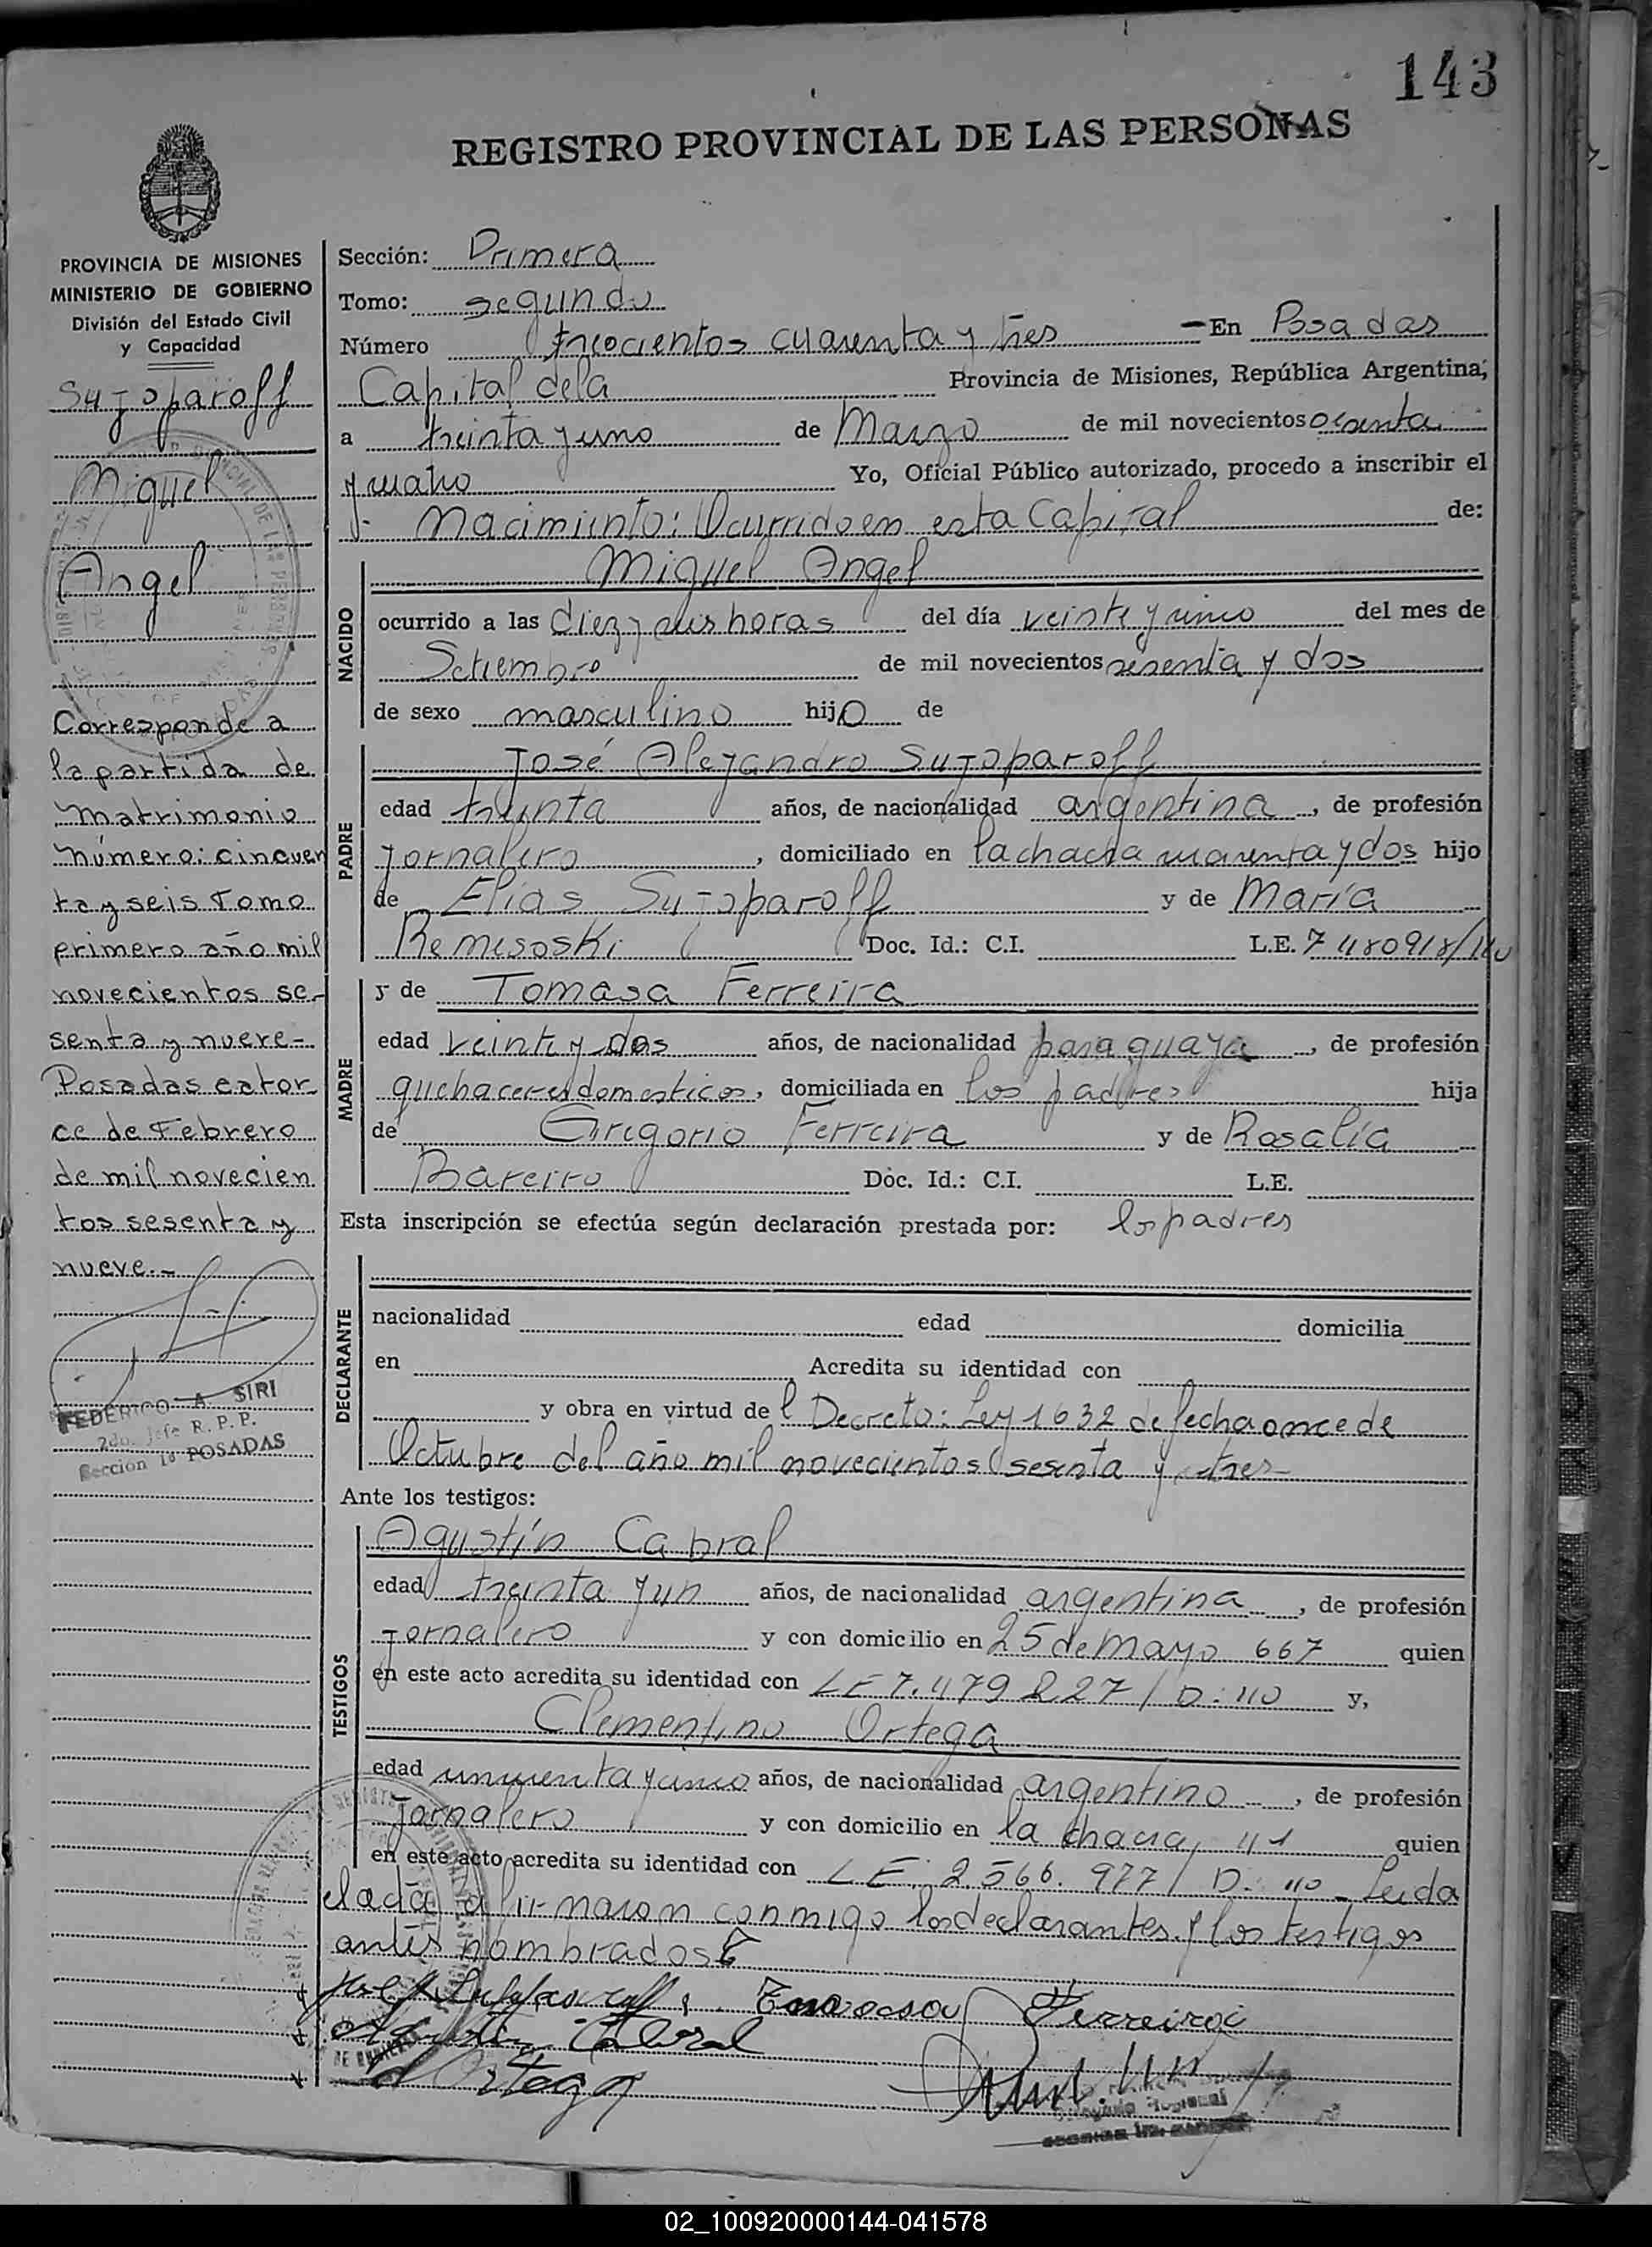 143
REGISTRO PROVINCIAL DE LAS PERSONAS
PROVINCIA DE MISIONES
MINISTERIO DE GOBIERNO
División del Estado Civil
y Capacidad
Sujoparoff
Miguel
Angel
Corresponde a
la partida de
matrimonio
número: cincuen
ta y seis Tomo
primero año mil
novecientos se-
senta y nueve-
Posadas cator
ce de Febrero
de mil novecien
tos sesenta y
nueve.-
FEDERICO A. SIRI
2do. Jefe R. P. P.
Sección 1ª POSADAS
Sección: Primera
Tomo: segundo
Número trecientos cuarenta y tres - En Posadas
Capital de la Provincia de Misiones, República Argentina,
a treinta y uno de Marzo de mil novecientos sesenta
y cuatro Yo, Oficial Público autorizado, procedo a inscribir el
Nacimiento: Ocurrido en esta Capital de:
NACIDO
Miguel Angel
ocurrido a las diez y seis horas del día veinte y cinco del mes de
Setiembre de mil novecientos sesenta y dos
de sexo masculino hijo de
PADRE
José Alejandro Sujoparoff
edad treinta años, de nacionalidad argentina, de profesión
jornalero, domiciliado en la chacra cuarenta y dos hijo
de Elias Sujoparoff y de María
Remesoski Doc. Id.: C.I. L.E. 7480918/
MADRE
y de Tomasa Ferreira
edad veinte y dos años, de nacionalidad paraguaya, de profesión
quehaceres domesticos, domiciliada en los padres hija
de Gregorio Ferreira y de Rosalía
Bareiro Doc. Id.: C.I. L.E.
Esta inscripción se efectúa según declaración prestada por: los padres
DECLARANTE
nacionalidad edad domicilia
en Acredita su identidad con
y obra en virtud del Decreto: Ley 1632 de fecha once de
Octubre del año mil novecientos sesenta y tres-
Ante los testigos:
TESTIGOS
Agustín Cabral
edad treinta y un años, de nacionalidad argentina, de profesión
jornalero y con domicilio en 25 de Mayo 667 quien
en este acto acredita su identidad con LE 7.479.227/D: y,
Clementino Ortega
edad cincuenta y cinco años, de nacionalidad argentino, de profesión
jornalero y con domicilio en la chacra, 41 quien
en este acto acredita su identidad con LE. 2.566.977/D. - Leida
el acta la firmaron conmigo los declarantes y los testigos
antes nombrados
Tomasa Ferreira
Agustin Cabral
Ortega
02_100920000144-041578